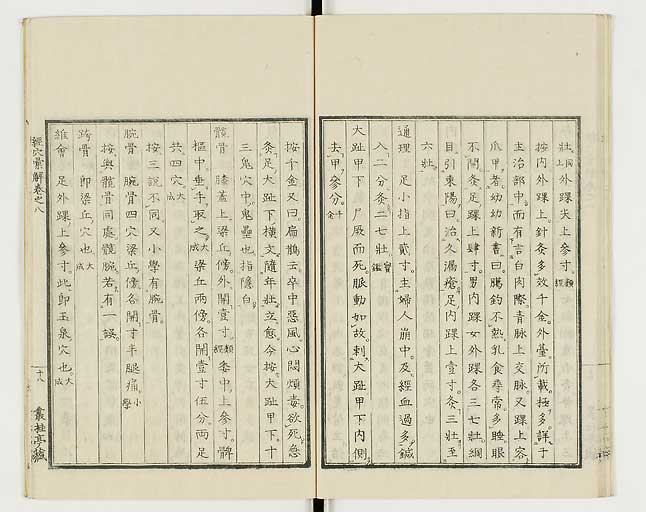 壯同上外踝尖上參寸類經
按内外踝上針灸多效千金外臺所載極多詳于
主治部中而有言白肉際青脈上交脈又踝上容
爪甲者幼幼新書曰臈釣不熟乳食尋常多睡眼
不開灸足踝上肆寸男内踝女外踝各三七壯綱
目引東陽曰治久漏瘡足内踝上壹寸灸三壯至
六壯
通理 足小指上貳寸主婦人崩中及經血過多鍼
入二分灸二七壯寶鑑
大趾甲下 尸厥而死脈動如故刺大趾甲下内側
去甲參分千金
按千金又曰扁鵲云卒中惡風心悶煩毒欲死急
灸足大趾下横文隨年壯立愈今按大趾甲下十
三鬼穴中鬼壘也指隱白
髖骨 膝蓋上梁丘傍外開壹寸類經委中上參寸髀
樞中垂手取之大成梁丘兩傍各開壹寸伍分兩足
共四穴大成
按三説不同又小學有腕骨
腕骨 腕骨四穴梁丘傍各開寸半腿痛小學
按與髖骨同處髖腕若有一誤
跨骨 即梁丘穴也大成
維會 足外踝上參寸此即玉泉穴也大成
經穴彙解卷之八
十八
叢桂亭藏